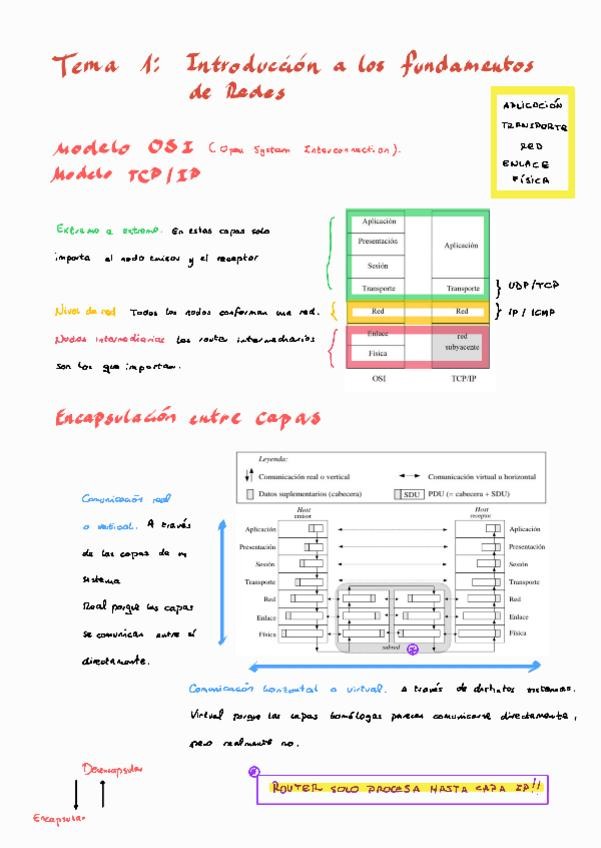 Tema 1: Introducción a los fundamentos
de Redes
APLICACIÓN
TRANSPORTE
RED
ENLACE
FÍSICA
Modelo OSI (Open System Interconnection).
Modelo TCP/IP
Extremo a extremo. En estas capas solo
importa el nodo emisor y el receptor
Nivel de red Todos los nodos conforman una red.
Nodos intermediarios los router intermediarios
son los que importan.
Aplicación
Presentación
Sesión
Transporte
Red
Enlace
Física
OSI
Aplicación
Transporte
Red
red
subyacente
TCP/IP
UDP/TCP
IP / ICMP
Encapsulación entre capas
Leyenda:
Comunicación real o vertical
Comunicación virtual u horizontal
Datos suplementarios (cabecera)
SDU PDU (= cabecera + SDU)
Comunicación real
o vertical. A través
de las capas de un
sistema
Real porque las capas
se comunican entre sí
directamente.
Host
emisor
Host
receptor
Aplicación
Presentación
Sesión
Transporte
Red
Enlace
Física
Aplicación
Presentación
Sesión
Transporte
Red
Enlace
Física
subred
Comunicación horizontal o virtual. A través de distintos sistemas.
Virtual porque las capas homólogas parecen comunicarse directamente,
pero realmente no.
Desencapsular
Encapsular
ROUTER SOLO PROCESA HASTA CAPA IP!!